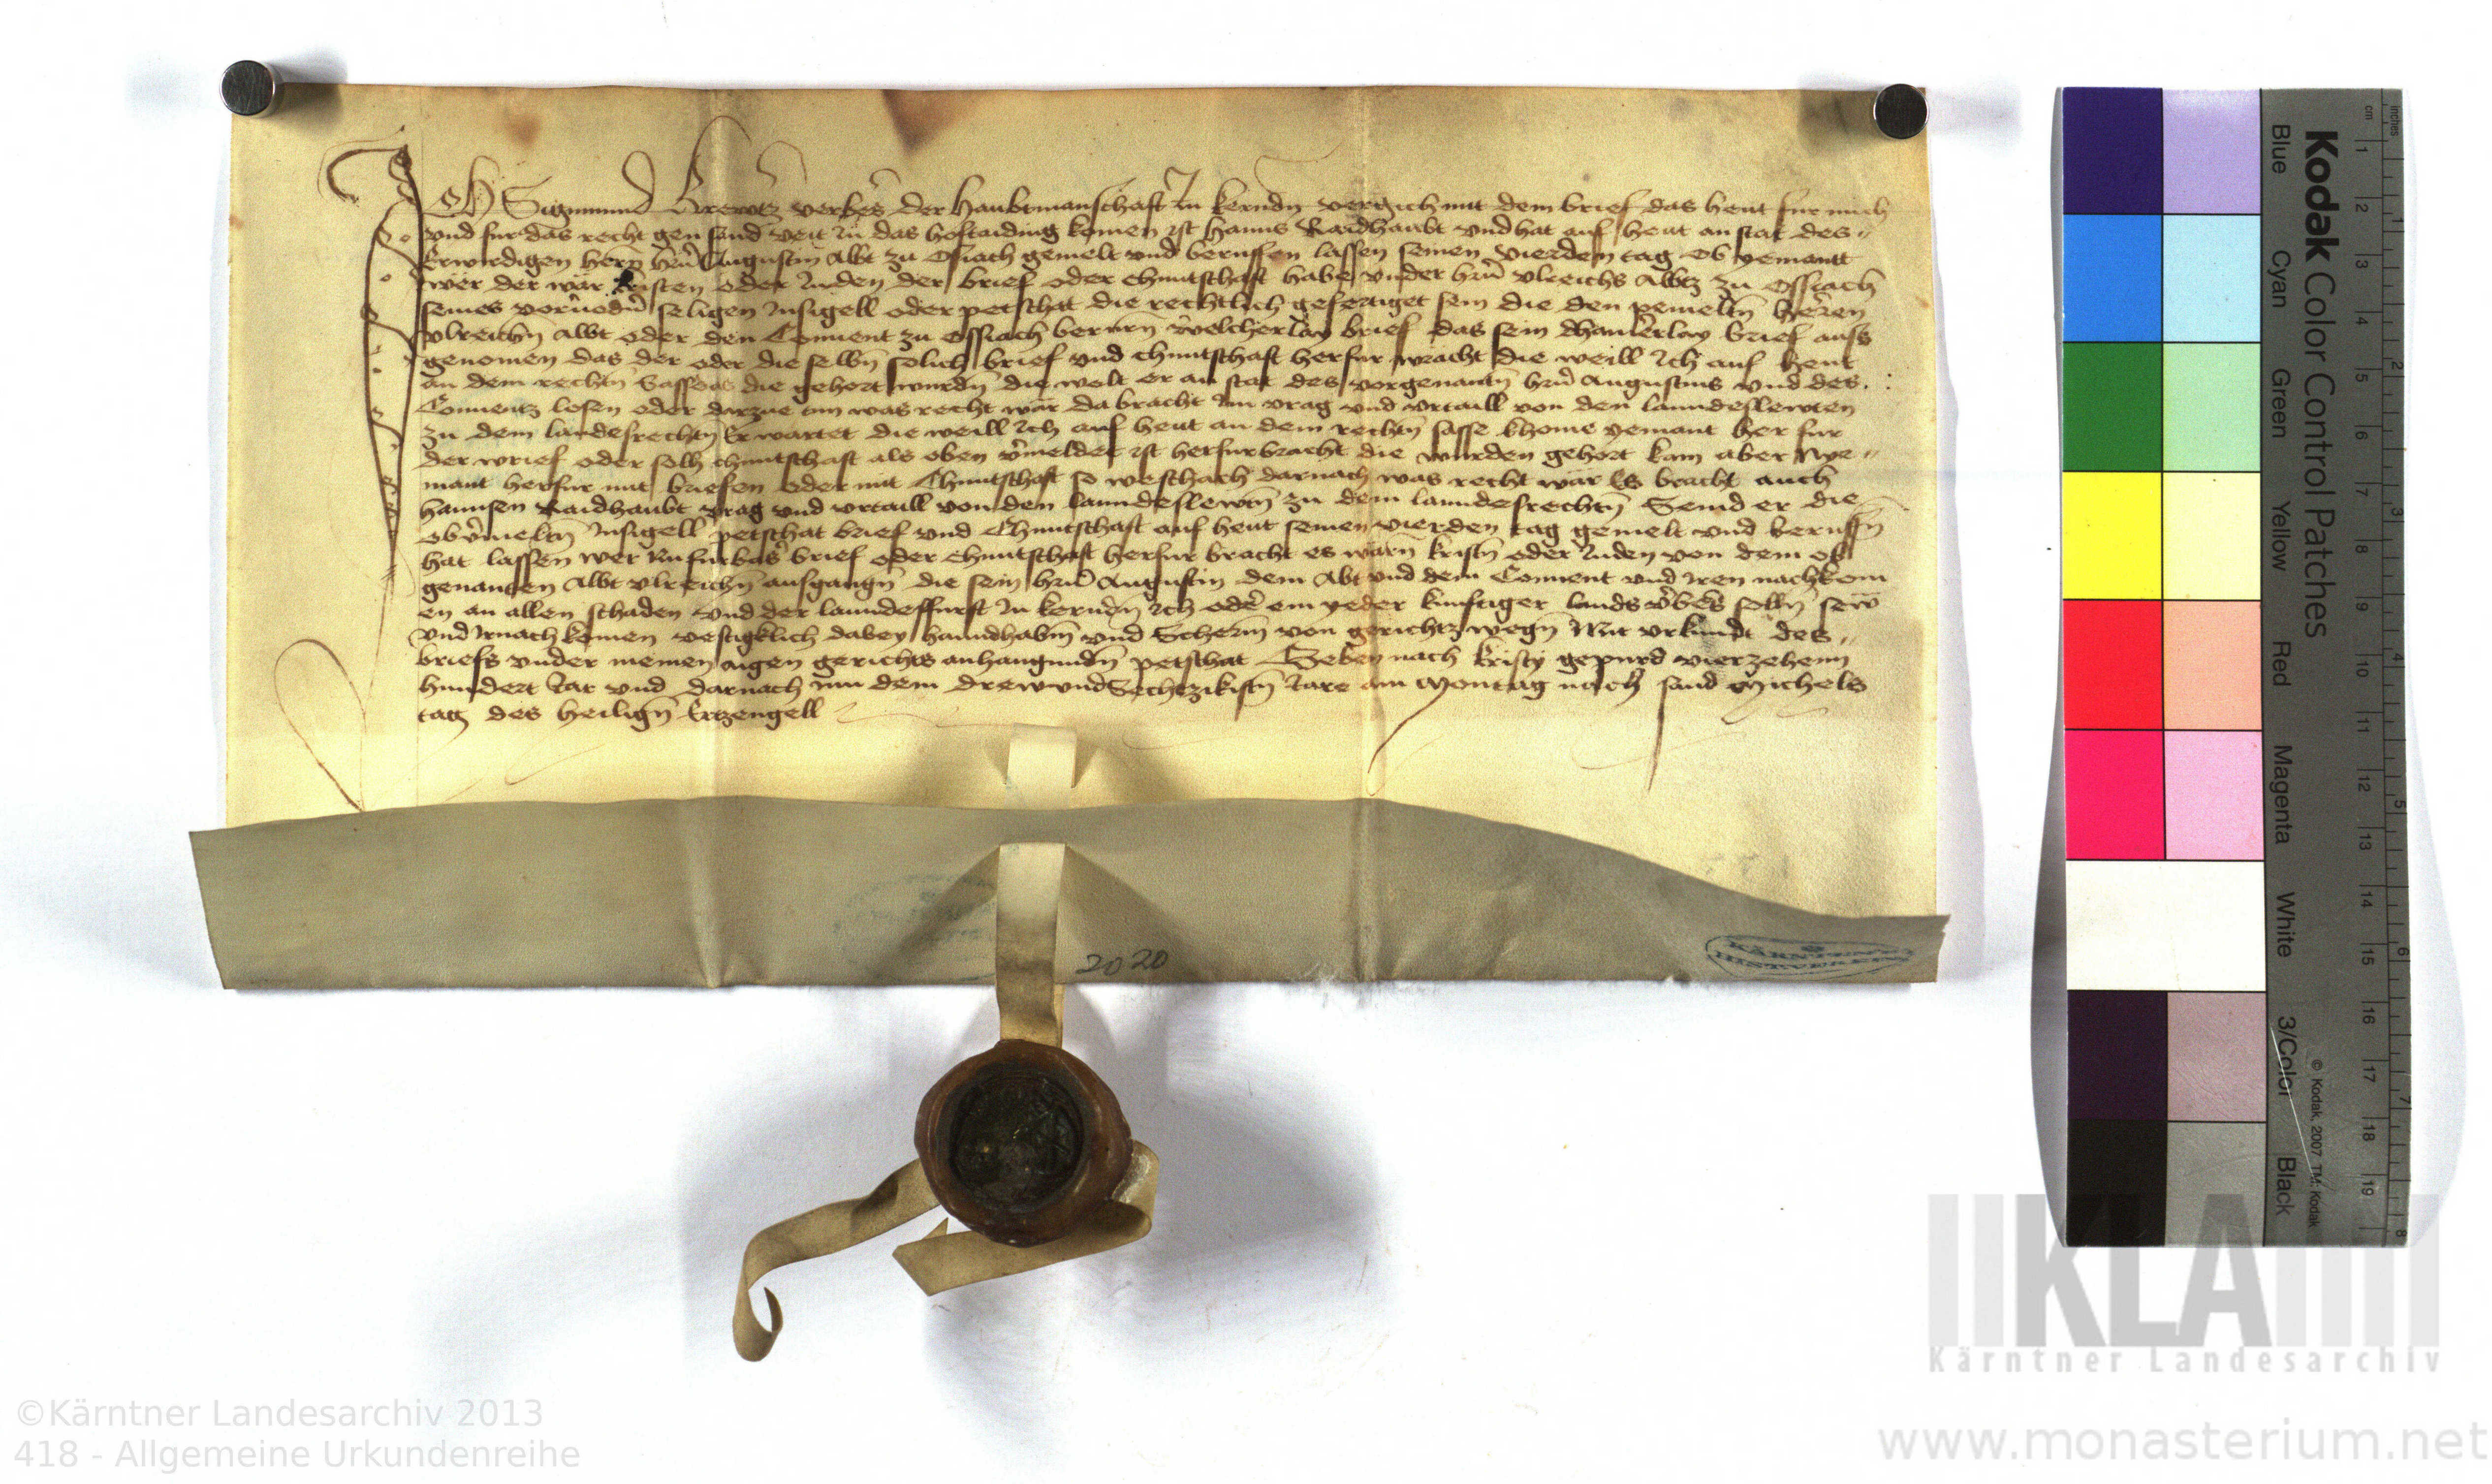 Ich Sigmund Krewtz verbes der haubtmanschaft In kerndn vergich mit dem brief das heut fur mich
vnd fur das recht gen sand veit in das hoftaiding komen ist hanns Raidhaubt vnd hat auf heut an stat des
Erwirdigen hern hrn Augustin Abt zu Osiach gemelt vnd beruffen lassen seinen vierden tag ob yemantt
wer der wär kristen oder Juden der brief oder chuntschaft habe vnder hrn vlreichs Abtz zu Ossiach
seines voruodn seligen Insigell oder petschat die rechtlich gefertiget sein die den gemeltn herren
vlreichn Abt oder den Conuent zu Ossiach berurn welcherlay brief das sein brief auss
genomen das der oder die selbn solich brief vnd chuntschaft herfur pracht die weill Ich auf heut
an dem rechtn Sasse das die gehort wurdn die wolt er an stat des vorgenantn hrn Augustins vnd des
Conuentz losen oder darzue tun was recht wär da bracht Im vrag vnd vrtaill von den lanndeslewten
zu dem landesrechtn Er wartet die weill Ich auf heut an dem rechtn sasse khome yemant her fur
der brief oder solh chuntschaft als oben vermeldet ist herfurbracht die wurden gehort kam aber nye
mant herfur mit briefen oder mit Chuntschaft so beschäch darnach was recht wär Es bracht auch
hannsen Raidhaubt vrag vnd vrtaill von den lanndeslewtn zu dem lanndesrechtn Seind er die
obvermeltn Insigell petschat brief vnd Chuntschaft auf heut seinen vierden tag gemelt vnd beruffn
hat lassen wer nu furbas brief oder chuntschaft herfur bracht es warn kristn oder Juden von dem ob
genanten Abt vlreichn ausgangn die sein hrn Augustin dem Abt vnd dem Conuent vnd iren nachkom
en an allen schaden vnd der lanndesfurst In kerndn Ich oder ein yeder kunftiger lands verbes solln sew
vnd Irnachkomen vestigklich dabey hanndhabm vnd Scherm von gerichtz wegn Mit vrkundt des
briefs vnder meinen aigen gerichts anhangundn petschat Geben nach kristy gepurd vierzehenn
hundert Jar vnd darnach inn dem drewundSechtzikistn Jare am Montag nach sand Michels
tag des heilign Ertzengell
2020
KÄRNTEN
HIST.VEREIN
Kodak Color Control Patches
Blue Cyan Green Yellow Red Magenta White 3/Color Black
© Kodak, 2007 TM: Kodak
inches 1 2 3 4 5 6 7 8
cm 1 2 3 4 5 6 7 8 9 10 11 12 13 14 15 16 17 18 19
KLA
Kärntner Landesarchiv
©Kärntner Landesarchiv 2013
418 - Allgemeine Urkundenreihe
www.monasterium.net